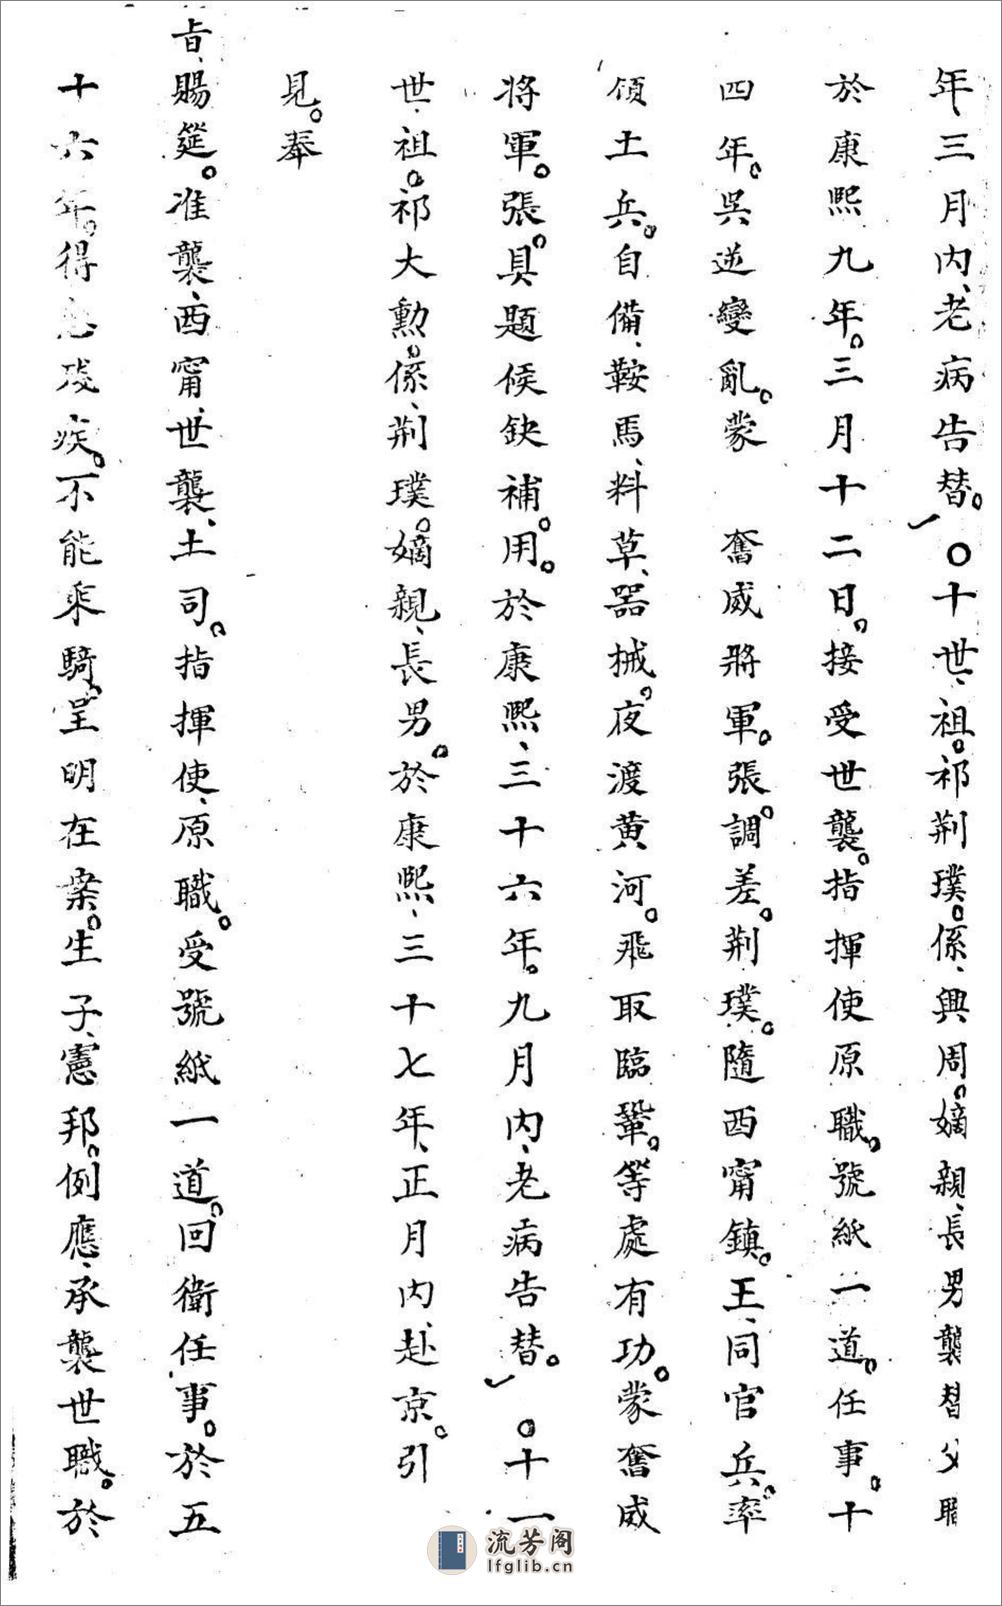 年、三月内、老病告替。〇十世、祖。祁荆璞。係、興周。嫡親、長男襲替父職
於康熙九年。三月十二日。接受世襲。指揮使原職。號紙一道。任事。十
四年。吳逆變亂。蒙　奮威將軍。張。調差。荆璞。隨西甯鎮。王、同官兵。率
領土兵。自備、鞍馬、料草、器械。夜渡黄河。飛取臨鞏。等處有功。蒙奮威
將軍。張。具題候缺補。用。於康熙、三十六年。九月内、老病告替。〇十一
世、祖。祁大勲。係、荆璞。嫡親、長男。於康熙、三十七年、正月内、赴京。引
見。奉
旨、賜筵。准襲、西甯、世襲、土司。指揮使、原職。受號紙一道。回衛任事。於五
十六年。得患殘疾。不能乘騎。呈明在案。生子、憲邦。例應、承襲世職。於
流芳阁
lfglib.cn